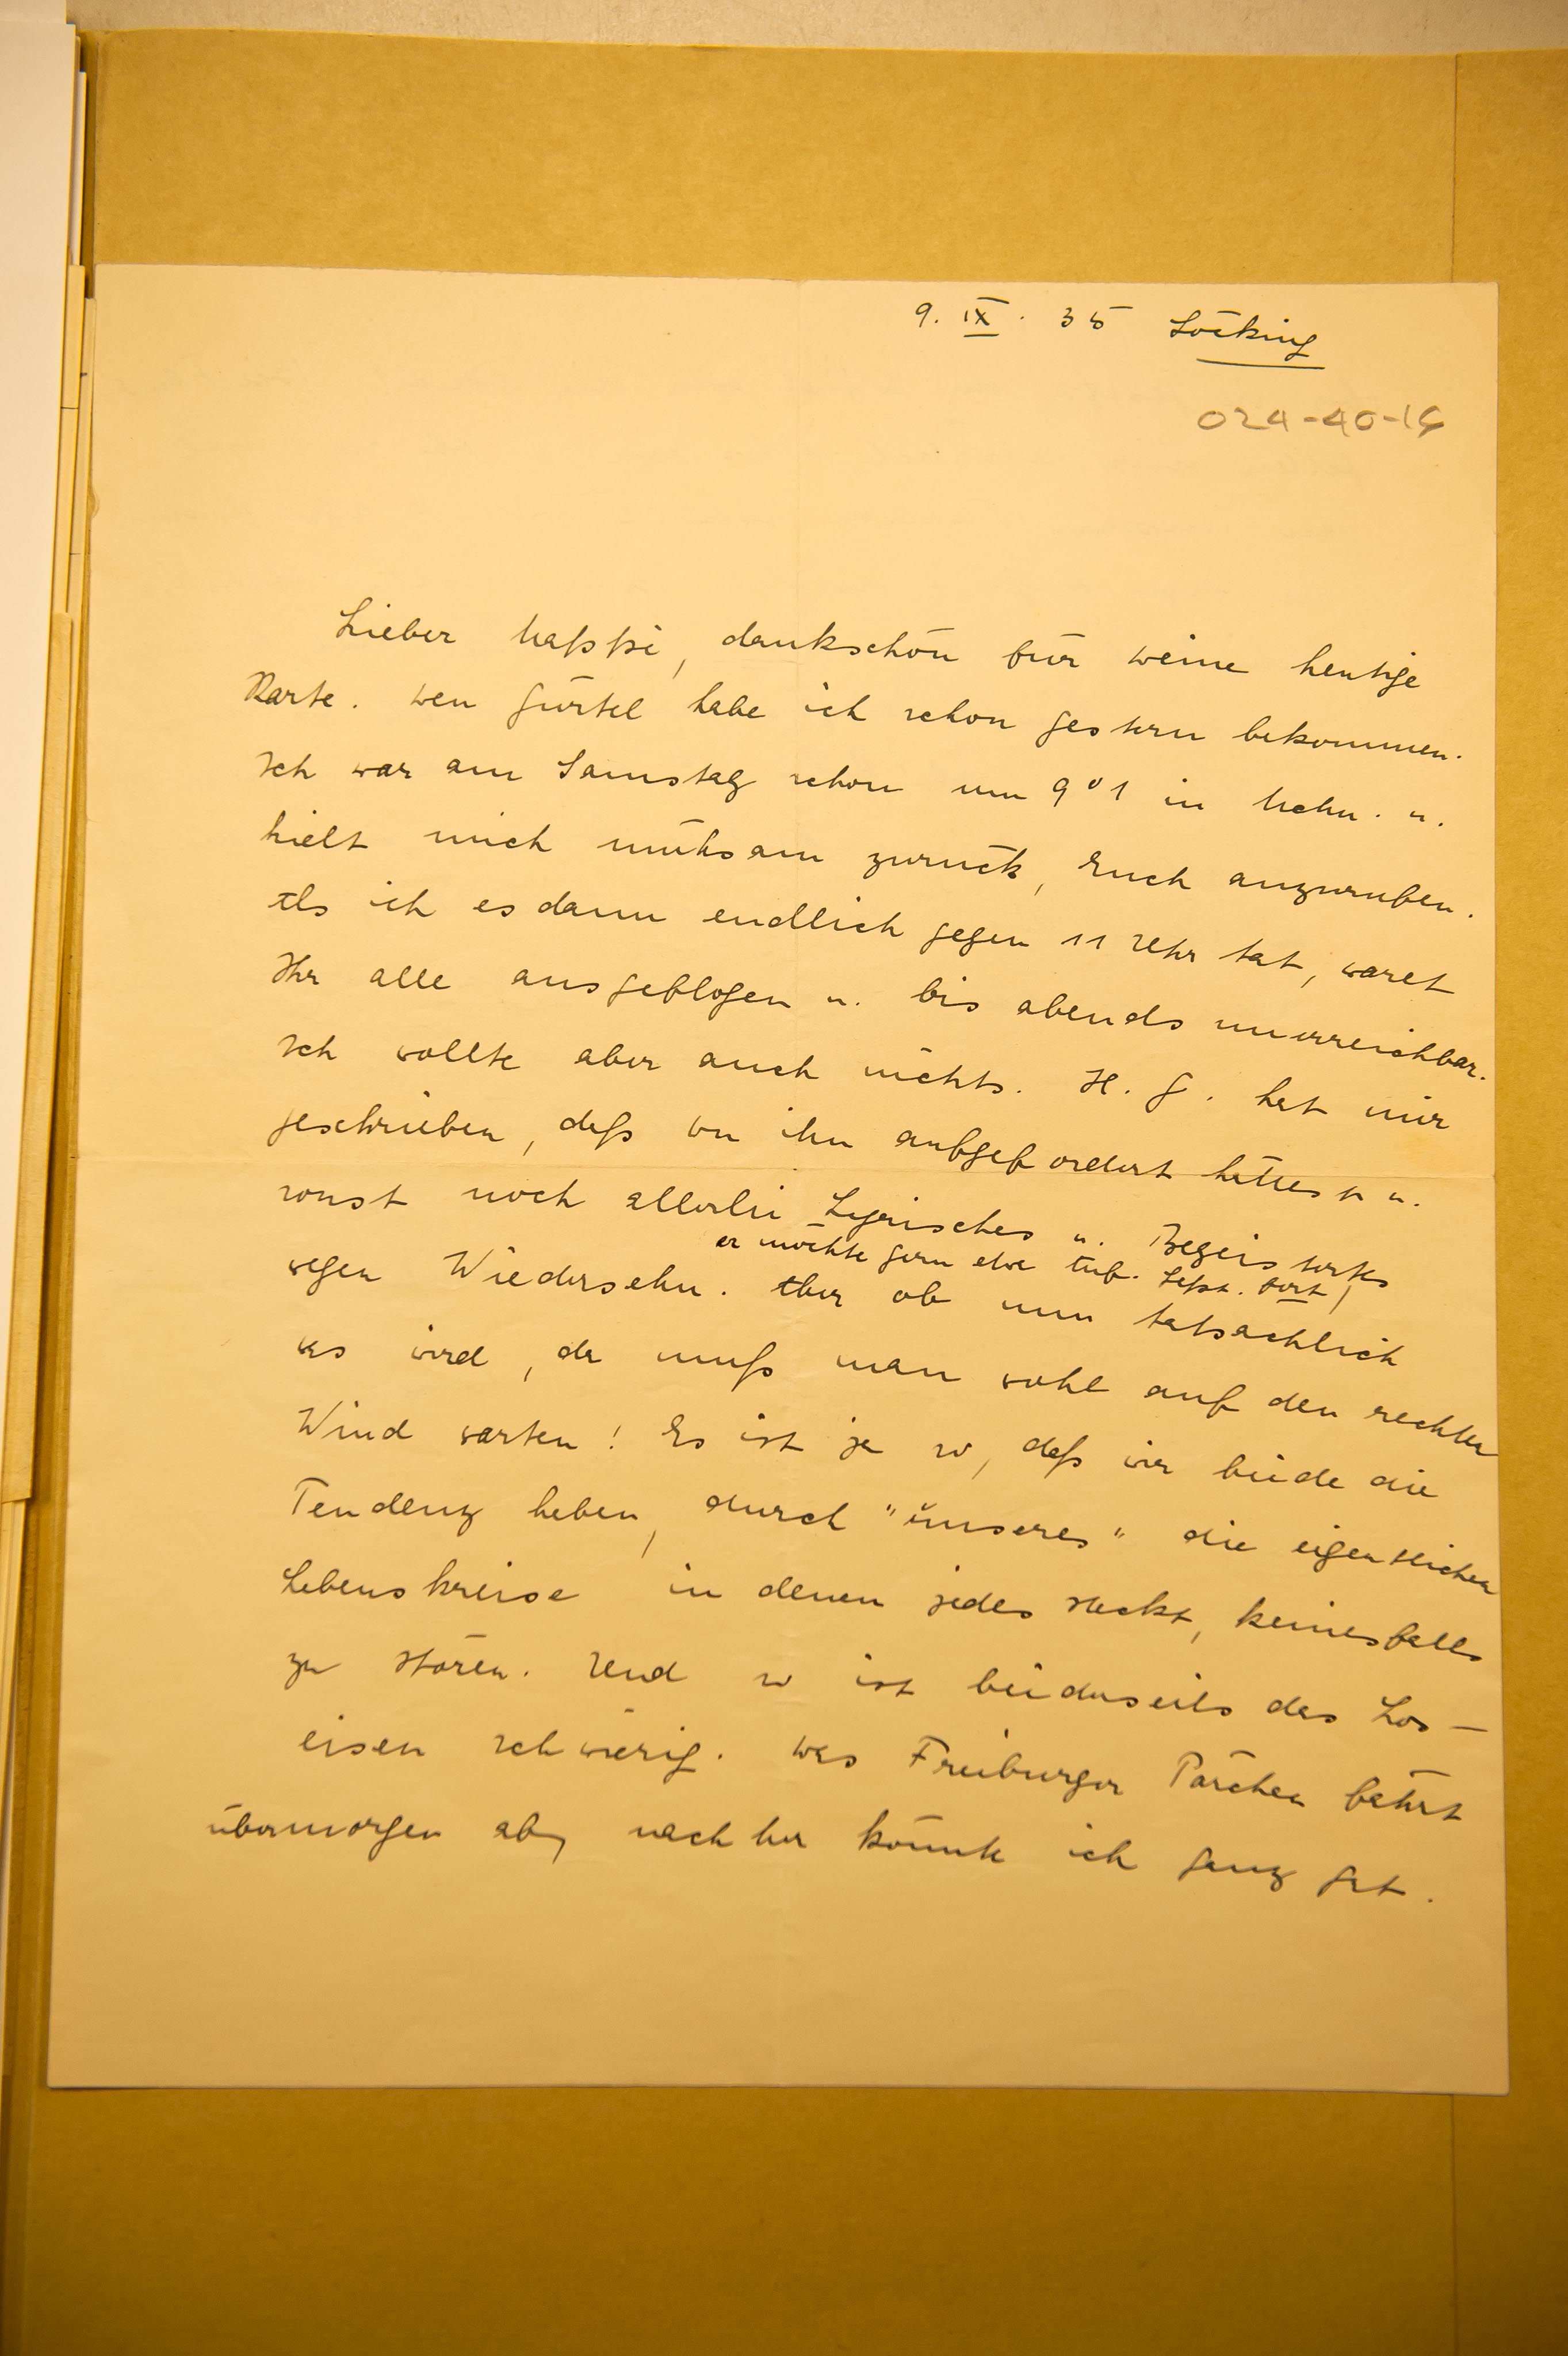 9. IX. 35 Söcking
024-40-16
Lieber Massi, dankschön für Deine heutige
Karte. Den Gürtel habe ich schon gestern bekommen.
Ich war am Samstag schon um 9⁰¹ in Mchn. u.
hielt mich mühsam zurück, Euch anzurufen.
Als ich es dann endlich gegen 11 Uhr tat, waret
Ihr alle ausgeflogen u. bis abends unerreichbar.
Ich wollte aber auch nichts. H. G. hat mir
geschrieben, daß Du ihn aufgefordert hättest u.
sonst noch allerlei Lyrisches u. Begeistertes
er möchte gern etwa Anf. Sept. fort,
wegen Wiedersehn. Aber ob nun tatsächlich
was wird, da muß man wohl auf den rechten
Wind warten! Es ist ja so, daß wir beide die
Tendenz haben, durch "unseres" die eigentlichen
Lebenskreise in denen jedes steckt, keinesfalls
zu stören. Und so ist beiderseits das Los-
eisen schwierig. Das Freiburger Pärchen fährt
übermorgen ab, nachher könnte ich ganz gut.